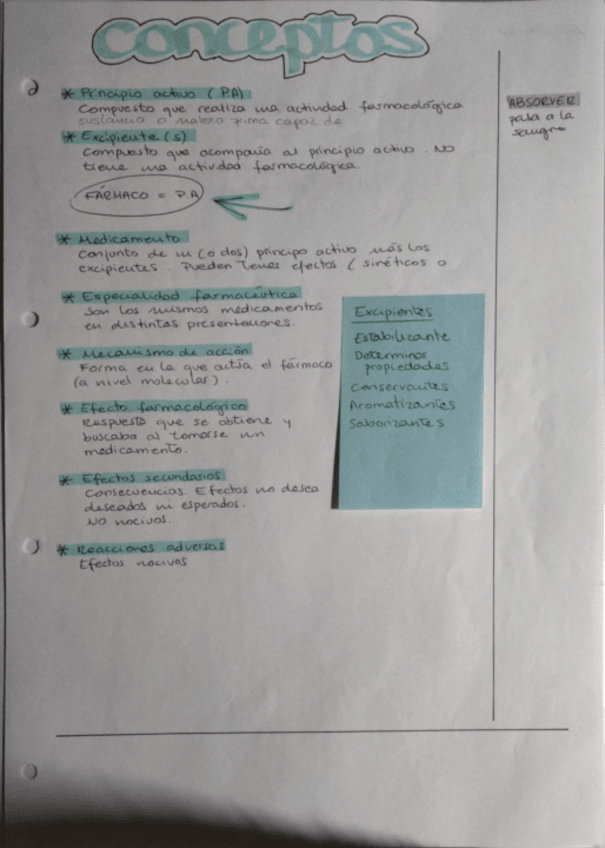 conceptos
* Principio activo (PA)
Compuesto que realiza una actividad farmacológica
sustancia o materia prima capaz de
* Excipiente(s)
Compuesto que acompaña al principio activo. No
tiene una actividad farmacológica.
FÁRMACO = P.A
* Medicamento
Conjunto de un (o dos) principo activo más los
excipientes. Pueden tener efectos (sinéticos o
* Especialidad farmacéutica
Son los mismos medicamentos
en distintas presentaciones.
* Mecanismo de acción
Forma en la que actúa el fármaco
(a nivel molecular).
* Efecto farmacológico
Respuesta que se obtiene y
buscaba al tomarse un
medicamento.
* Efectos secundarios
Consecuencias. Efectos no desea
deseados ni esperados.
No nocivos.
* Reacciones adversas
Efectos nocivos
Excipientes
Estabilizante
Determinar
propiedades
Conservantes
Aromatizantes
Saborizantes
ABSORVER
pasa a la
sangre